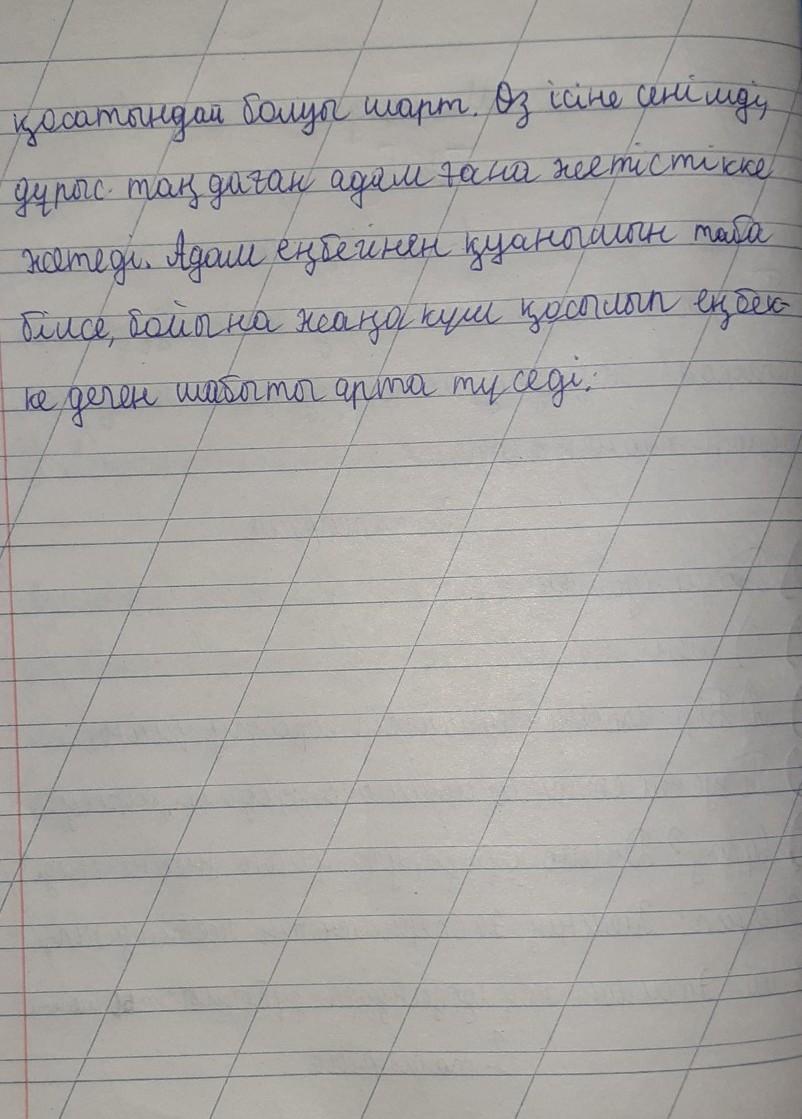 қосатындай болуы шарт. Өз ісіне сенімді,
дұрыс таңдаған адам ғана жетістікке
жетеді. Адам еңбейнен қуанышын таба
білсе, бойына жаңа күш қосылып еңбек-
ке деген шабыты арта түседі.